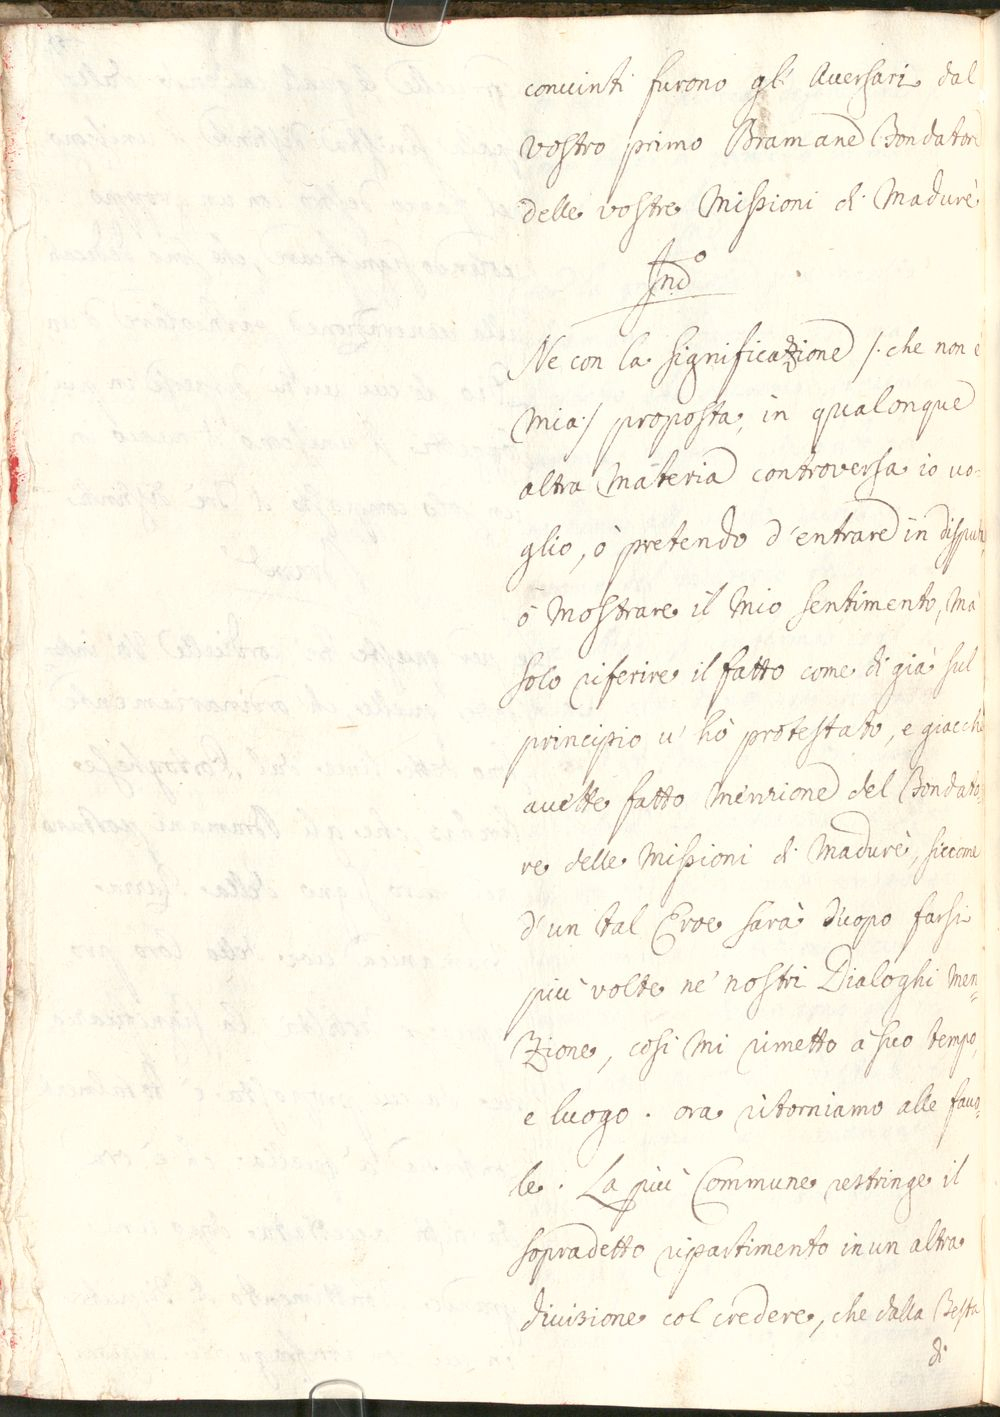 conuinti furono gl' Auersari dal
vostro primo Bramane Bondatore
delle vostre Missioni di Madurè
Ind.º
Ne con la significazione /. che non è
mia ./ proposta, in qualonque
altra materia controversa io uo-
glio, ò pretendo d'entrare in disputa,
ò mostrare il mio sentimento, mà
solo riferire il fatto come di già sul
principio u' hò protestato, e giacchè
auette fatto menzione del Bondato-
re delle Missioni di Madurè, siccome
d'un tal Eroe sarà d'uopo farsi
più volte ne' nostri Dialoghi men=
zione, così mi rimetto à suo tempo,
e luogo. ora ritorniamo alle fauo-
le. La più Commune restringe il
sopradetto ripartimento in un altra
diuisione col credere, che dalla Testa
di